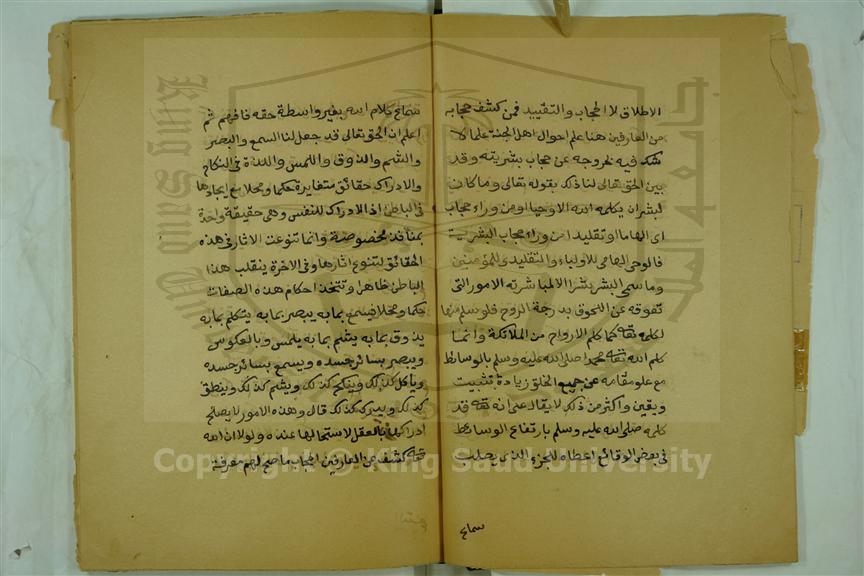 الاطلاق لا الحجاب والتقييد فمن كشف حجابه
من العارفين هنا علم احوال اهل الجنة علما لا
شك فيه لخروجه عن حجاب بشريته وقد
بين الحق تعالى لنا ذلك بقوله تعالى وما كان
لبشر ان يكلمه الله الا وحيا او من وراء حجاب
اى الهاما او تقليد امن وراء حجاب البشرية
فالوحى الهامى للاولياء والتقليدى للمؤمنين
وما سمى البشر بشرا الا لمباشرته الامور التى
تعوقه عن اللحوق بدرجة الروح فلو سلم منها
لكلمه تعالى كما كلم الارواح من الملائكة وانما
كلم الله تعالى محمدا صلى الله عليه وسلم بالوسائط
مع علو مقامه عن جميع الخلق زيادة تثبيت
ويقين واكثر من ذلك لا يقال على انه تعالى قد
كلمه صلى الله عليه وسلم بارتفاع الوسائط
فى بعض الوقائع اعطاه للجزء الذى يطلب
سماع
سماع كلام الله بغير واسطة حقه فافهم ثم
اعلم ان الحق تعالى قد جعل لنا السمع والبصر
والشم والذوق واللمس واللذة فى النكاح
والادراك حقائق متغايرة حكما ومحلا مع ايجادها
فى الباطن اذ الادراك للنفس وهى حقيقة واحدة
بمنافذ مخصوصة وانما تنوعت الاثار فى هذه
الحقائق لتنوع اثارها وفى الاخرة ينقلب هذا
الباطن ظاهرا وتتحد احكام هذه الصفات
حكما ومحلا فيسمع بما به يبصر بما به يتكلم بما به
يذوق بما به يشم بما به يلمس وبالعكوس
ويبصر بسائر جسده ويسمع بسائر جسده
ويأكل كذلك وينكح كذلك ويشم كذلك وينطق
كذلك ويدرك كذلك قال وهذه الامور لا يصلح
ادراكها بالعقل لاستحالتها عنده ولولا ان الله
تعالى كشف عن العارفين الحجاب ما صح لهم معرفة
جامعة الملك
King Saud U
Copyright © King Saud University